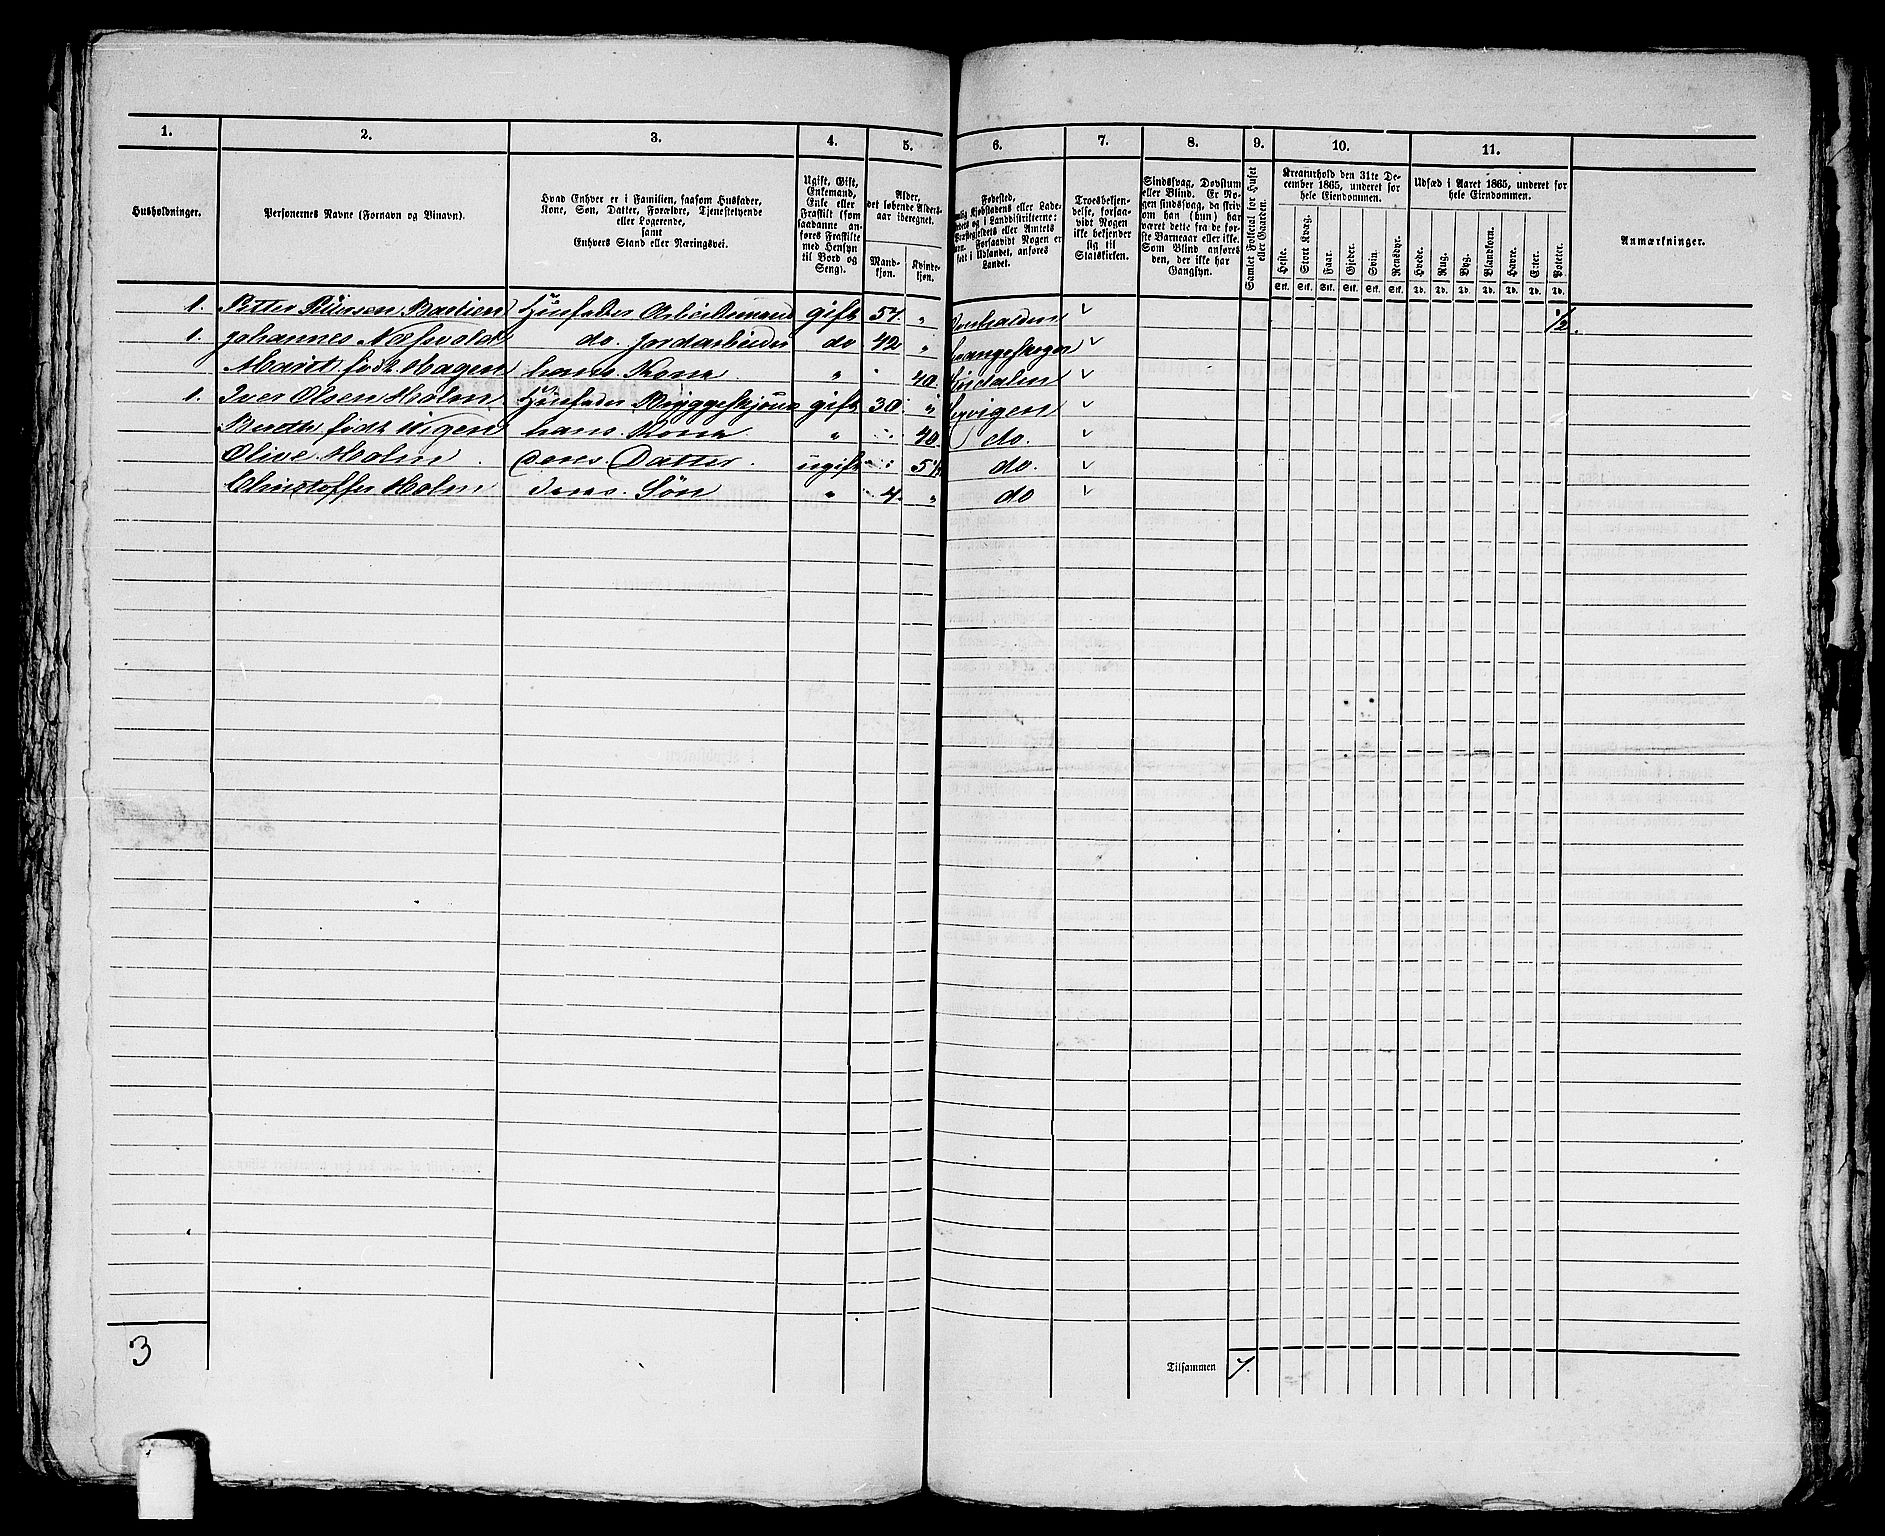 1. 2. 3. 4. 5. 6. 7. 8. 9. 10. 11.
Husholdninger.
Personernes Navne (Fornavn og Tilnavn).
Hvad Enhver er i Familien, saasom Husfader,
Kone, Søn, Datter, Forældre, Tjenestetyende
eller Logerende,
samt
Enhvers Stand eller Næringsvei.
Ugift, Gift,
Enkemand,
Enke eller
Fraskilt (som
saadanne an-
føres Fraskilte
med Hensyn
til Bord og
Seng).
Alder,
det løbende Alders-
aar iberegnet.
Mand-
kjøn.
Kvinde-
kjøn.
Fødested,
Kjøbstadens eller Lade-
og i Landdistrikterne:
eller Amtets
Forsaavidt Nogen er
født i Udlandet, anføres
Landet.
Troesbekjen-
delse, forsaa-
vidt Nogen
ikke bekjender
sig til
Statskirken.
Sindssvag, Døvstum
eller Blind. Er No-
gen sindssvag, da skriv
om han (hun) har
været dette fra de før-
ste Barneaar eller ikke.
Som Blind anføres
den, der ikke har
Gangsyn.
Samlet Folketal for Huset
eller Gaarden.
Kreaturhold den 31te De-
cember 1865, underet for
hele Eiendommen.
Heste. Stort Kvæg. Faar. Gjeder. Svin. Rensdyr.
Stk. Stk. Stk. Stk. Stk. Stk.
Udsæd i Aaret 1865, underet for
hele Eiendommen.
Hvede. Rug. Byg. Blandkorn. Havre. Erter. Poteter.
Td. Td. Td. Td. Td. Td. Td.
Anmærkninger.
1. Petter Bastien Husfader Arbeidsmand gift 57. " ✓ 1/2.
1. Johannes do. Jordarbeider do 42 " ✓
Marit født Hagen hans Kone. " 40. ✓
1. Iver Olsen Holm Husfader gift 30. " ✓
født Wigen hans Kone. " 40. do. ✓
Olive Holm deres Datter. ugift 5 do. ✓
Christoffer Holm deres Søn " 4. " do ✓
3
Tilsammen 7.